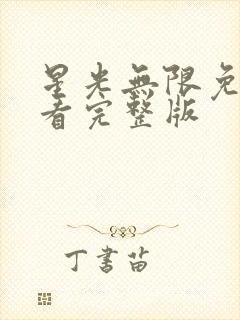 星光無限免
看完整版
丁書苗